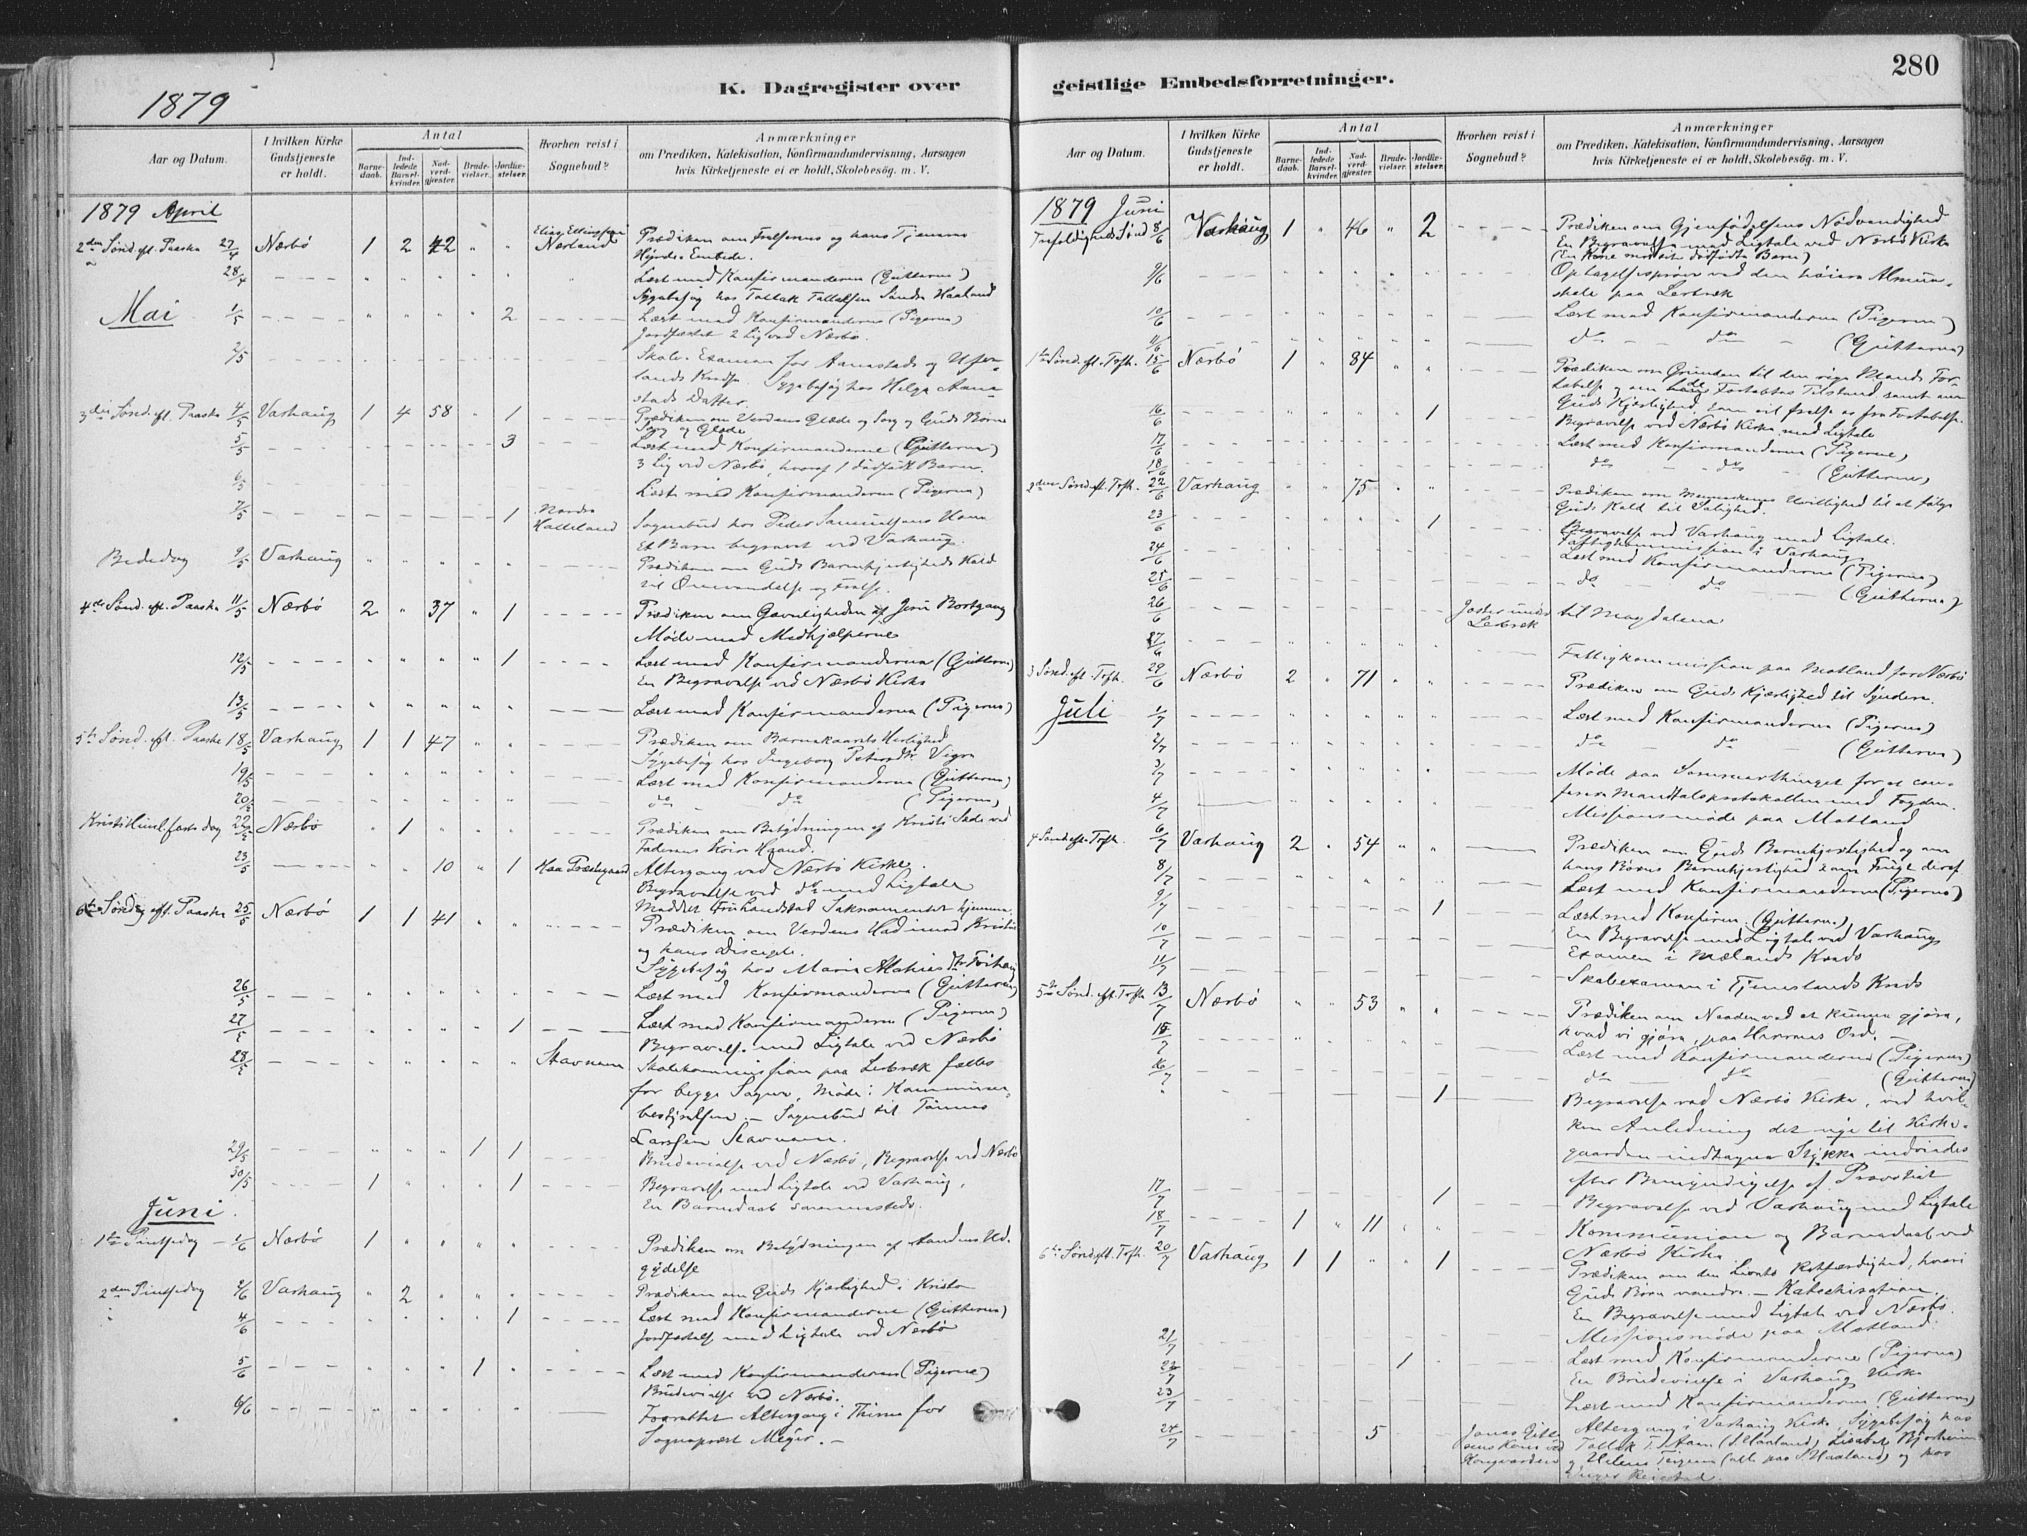 1879
K. Dagregister over
Aar og Datum.
I hvilken Kirke Gudstjeneste er holdt.
Antal
Barnedaab.
Indledede Barselkvinder.
Nadverdgjester.
Brudevielser.
Jordfæstelser.
Hvorhen reist i Sognebud?
Anmærkninger
om Prædiken, Katekisation, Konfirmandundervisning, Aarsagen
hvis Kirketjeneste ei er holdt, Skolebesøg. m. V.
1879 April
2den Sønd. eft. Paaske 27/4 Nærbø 1 2 42 " " Nærland Prædiken om Frelserens og hans Tjeneres
Hyrde-Embede.
28/4 Læst med Konfirmanderne (Gutterne)
Sygebesøg hos Tollak Tollefsen Søndre Haaland
Mai 1/5 2 Læst med Konfirmanderne (Pigerne)
Jordfæstet 2 Lig ved Nærbø.
2/5 Skole-Examen for Aanestads og
lands Kreds. Sygebesøg hos Helga Aane-
stads Datter.
3die Sønd. eft. Paaske 4/5 Varhaug 1 4 58 " 1 Prædiken om Verdens Glæde og Sorg og Guds Børns
Sorg og Glæde
5/5 3 Læst med Konfirmanderne (Gutterne)
3 Lig ved Nærbø, hvoraf 1 dødfødt Barn.
6/5 Læst med Konfirmanderne (Pigerne)
7/5 1 Nordre
Sognebud hos Peder Samuelsens Kone
Et Barn begravet ved Varhaug.
Bededag 9/5 Varhaug Prædiken om Guds Barmhjertigheds Kald
til Omvendelse og Frelse.
4de Sønd. eft. Paaske 11/5 Nærbø 2 " 37 " 1 Prædiken om Gavnligheden af Jesu Bortgang
Møde med Medhjælperne
12/5 1 Læst med Konfirmanderne (Gutterne)
En Begravelse ved Nærbø Kirke
13/5 Læst med Konfirmanderne (Pigerne)
5te Sønd. eft. Paaske 18/5 Varhaug 1 1 47 " " Prædiken om Barnekaarets Herlighed
Sygebesøg hos Ingeborg Vigre
19/5 Læst med Konfirmanderne (Gutterne)
20/5 do do (Pigerne)
Kristi Himmelfarts dag 22/5 Nærbø " 1 Prædiken om Betydningen af Kristi Sæde ved
Faderens høire Haand.
23/5 10 " 1 Haa Præstegaard Altergang ved Nærbø Kirke.
Begravelse ved do med Ligtale
Sakramentet hjemme
6te Søndg eft. Paaske 25/5 Nærbø 1 1 41 Prædiken om Verdens Had imod Kristus
og hans Disciple.
Sygebesøg hos
26/5 Læst med Konfirmanderne (Gutterne)
27/5 1 Læst med Konfirmanderne (Pigerne)
Begravelse med Ligtale ved Nærbø
28/5 Stavnem Skolekommission paa Lerbræk fælles
for begge Sogne, Møde i Kommune-
bestyrelsen. - Sognebud til Tønnes
Larssen Stavnem.
29/5 1 1 Brudevielse ved Nærbø, Begravelse ved Nærbø
30/5 1 1 Begravelse med Ligtale ved Varhaug,
En Barnedaab sammesteds.
Juni.
1ste Pintsedag 1/6 Nærbø 1 Prædiken om Betydningen af Aandens Ud-
gydelse
2den Pintsedag 2/6 Varhaug " 2 Prædiken om Guds Kjærlighed i Kristo
4/6 1 Læst med Konfirmanderne (Gutterne)
Jordfæstelse med Ligtale ved Nærbø
5/6 1 Læst med Konfirmanderne (Pigerne)
Brudevielse ved Nærbø.
6/6 Forrettet Altergang i Thime for
Sogneprest Meyer. -
geistlige Embedsforretninger.
280
Aar og Datum.
I hvilken Kirke Gudstjeneste er holdt.
Antal
Barnedaab.
Indledede Barselkvinder.
Nadverdgjester.
Brudevielser.
Jordfæstelser.
Hvorhen reist i Sognebud?
Anmærkninger
om Prædiken, Katekisation, Konfirmandundervisning, Aarsagen
hvis Kirketjeneste ei er holdt, Skolebesøg. m. V.
1879 Juni
Trefoldigheds Sønd 8/6 Varhaug 1 " 46 " 2 Prædiken om Gjenfødelsens Nødvendighed
En Begravelse med Ligtale ved Nærbø Kirke
(En Kone med sit dødfødte Barn)
9/6 Optagelsesprøve ved den høiere Almue-
skole paa Lerbræk
10/6 Læst med Konfirmanderne (Pigerne)
11/6 do do (Gutterne)
1ste Sønd. eft. Trefh. 15/6 Nærbø 1 " 84 Prædiken om Grunden til den rige Mands For-
tabelse og om de Fortabtes Tilstand samt om
Guds Kjærlighed, som vil frelse os fra Fortabelse.
16/6 1 Begravelse ved Nærbø Kirke med Ligtale
17/6 Læst med Konfirmanderne (Pigerne)
18/6 do do (Gutterne)
2den Sønd. eft. Trefh. 22/6 Varhaug 75 Prædiken om Menneskenes Uvillighed til at følge
Guds Kald til Salighed.
23/6 1 Begravelse ved Varhaug med Ligtale.
24/6 Fattigkommission i Varhaug
Læst med Konfirmanderne (Pigerne)
25/6 do do (Gutterne)
26/6 til Magdalena
27/6 Fattigkommission paa Motland for Nærbø
3 Sønd. eft. Trefh. 29/6 Nærbø 2 " 71 Prædiken om Guds Kjærlighed til Syndere
Juli 1/7 Læst med Konfirmanderne (Pigerne)
2/7 do do (Gutterne)
3/7 Møde paa Sommerthinget for at con-
ferere Mandtalsprotokollen med Fogden.
4/7 Missionsmøde paa Motland
4 Sønd. eft. Trefh. 6/7 Varhaug 2 " 54 Prædiken om Guds Barmhjertighed og om
hans Børns Barmhjertighed som Frugt deraf
8/7 Læst med Konfirmanderne (Pigerne)
9/7 1 Læst med Konfirm. (Gutterne)
En Begravelse med Ligtale ved Varhaug
10/7 Examen i Mælands Kreds
11/7 Skoleexamen i Tjemslands Kreds
5te Sønd. eft. Trefh. 13/7 Nærbø " " 53 Prædiken om Naaden ved at kunne gjøre,
hvad vi gjøre, paa Herrens Ord. -
15/7 Læst med Konfirmanderne (Pigerne)
16/7 do do (Gutterne)
" 1 Begravelse ved Nærbø Kirke, ved hvil-
ken Anledning det nye til Kirke-
gaarden indtagne Stykke indviedes
efter Bemyndigelse af Provstiet
17/7 1 Begravelse ved Varhaug med Ligtale
18/7 1 " 11 Kommunion og Barnedaab ved
Nærbø Kirke
6te Sønd. eft. Trefh. 20/7 Varhaug 1 1 " " 1 Prædiken om den Retfærdighed, hvori
Guds Børn vandre. - Katechisation.
En Begravelse med Ligtale ved Nærbø.
21/7 Missionsmøde paa Motland.
22/7 1 Læst med Konfirmanderne (Pigerne)
En Brudevielse i Varhaug Kirke
23/7 Læst med Konfirmanderne (Gutterne)
24/7 5 Altergang i Varhaug Kirke, Sygebesøg hos